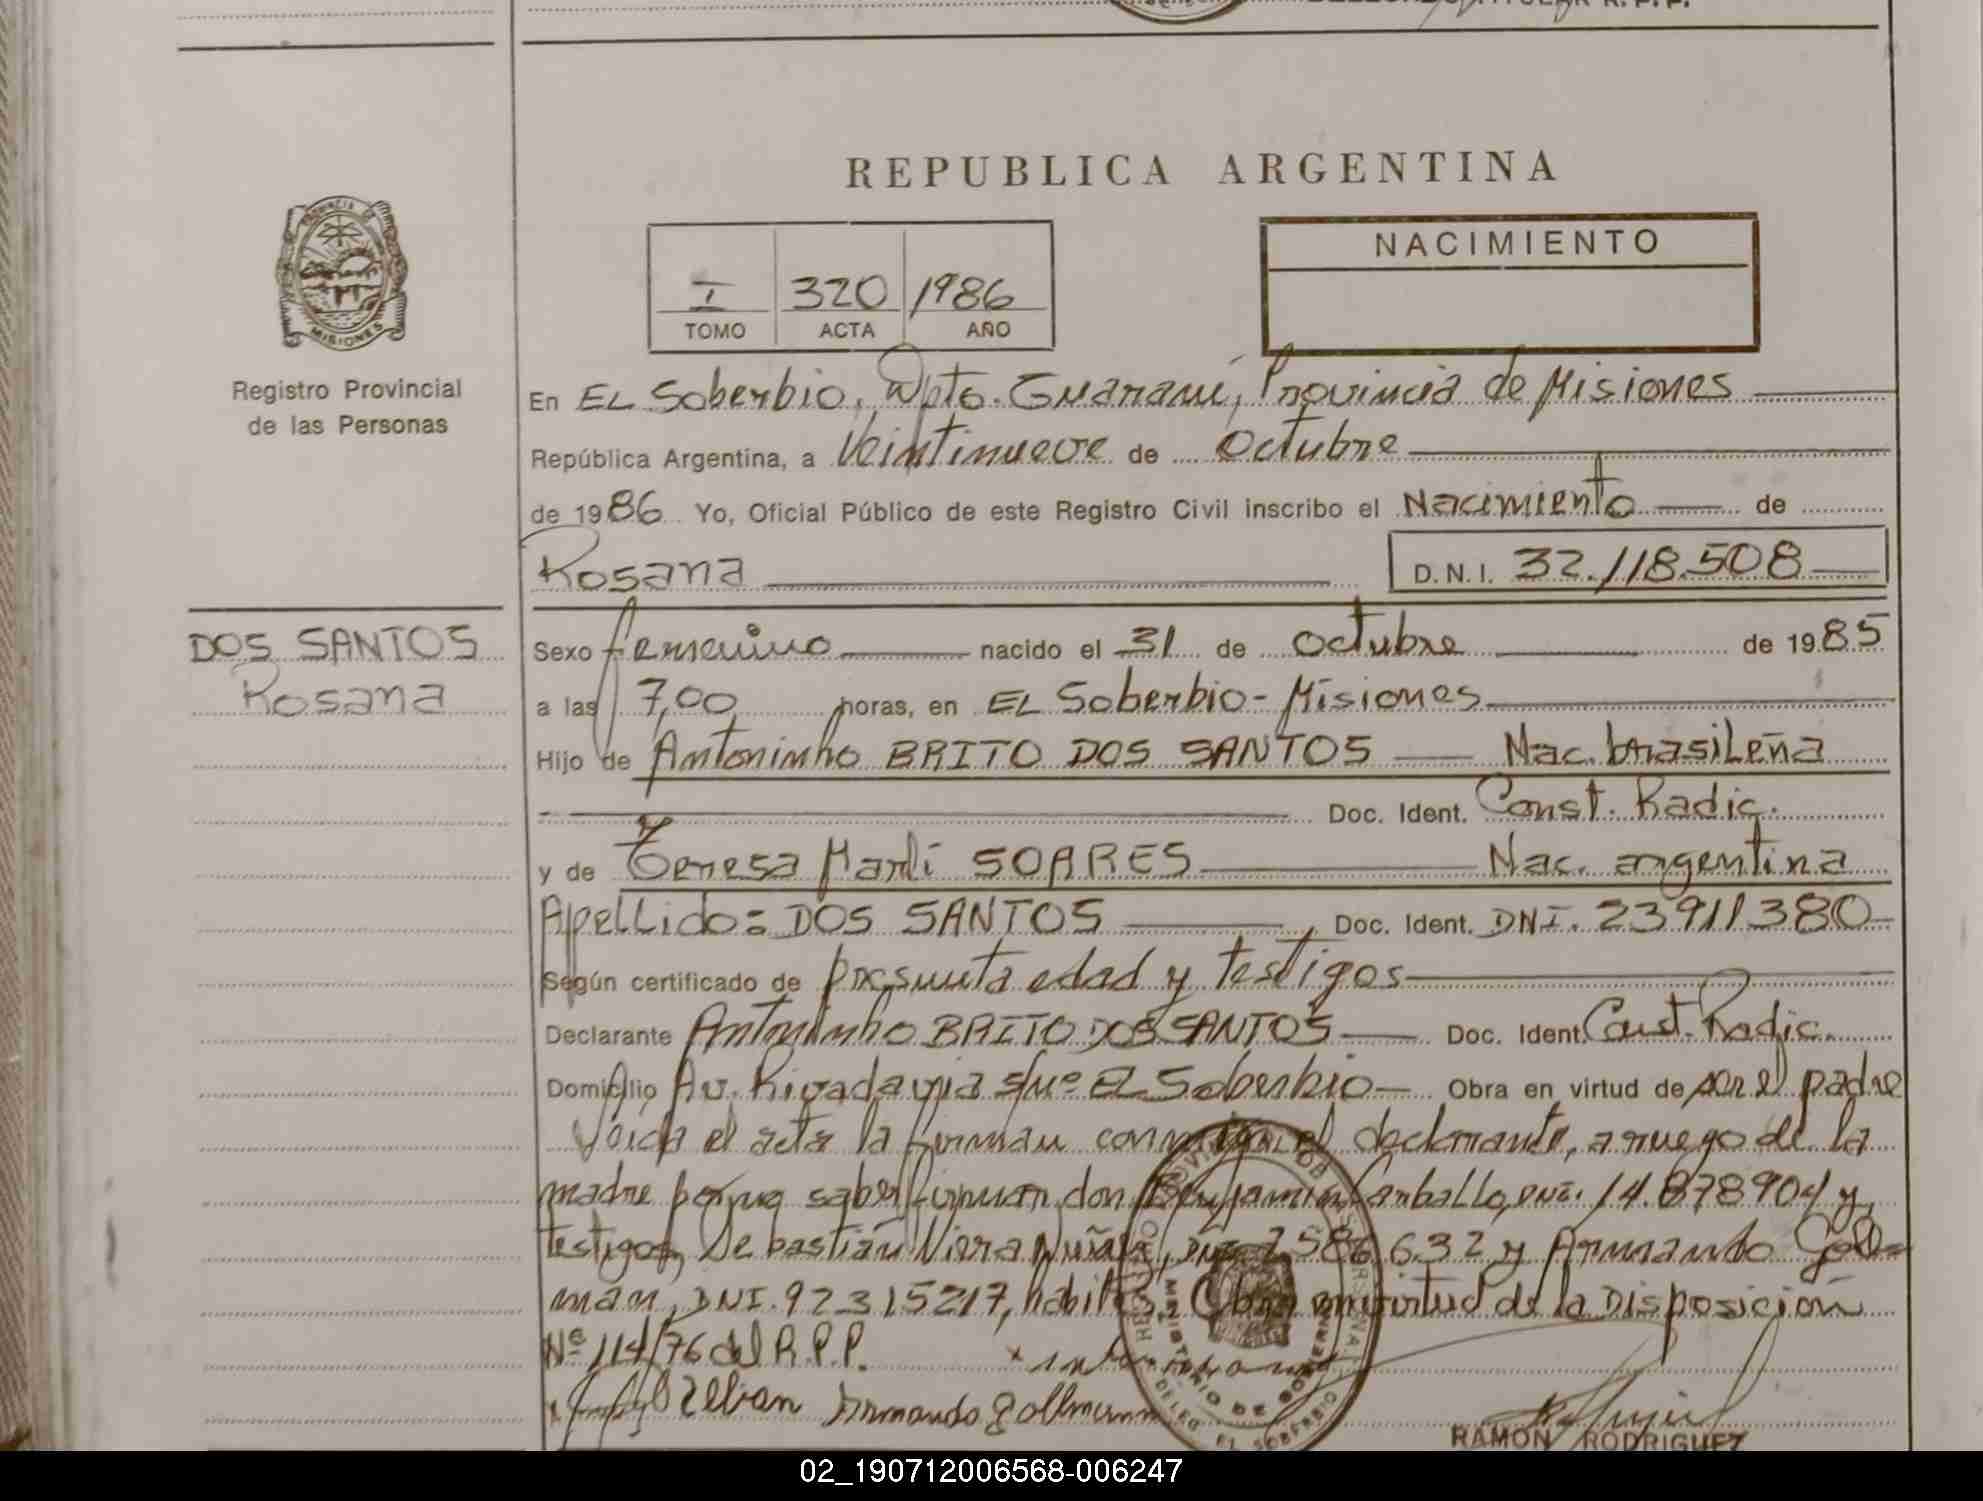 REPUBLICA ARGENTINA
NACIMIENTO
I 320 1986
TOMO ACTA AÑO
PROVINCIA DE
MISIONES
Registro Provincial
de las Personas
En EL Soberbio, Dpto. Guaraní, Provincia de Misiones
República Argentina, a Veintinueve de Octubre
de 1986 Yo, Oficial Público de este Registro Civil inscribo el Nacimiento de
Rosana D.N.I. 32.118.508
DOS SANTOS
Rosana
Sexo femenino nacido el 31 de octubre de 1985
a las 7,00 horas, en EL Soberbio - Misiones
Hijo de Antoninho BRITO DOS SANTOS Nac. brasileña
Doc. Ident. Const. Radic.
y de Teresa Marli SOARES Nac. argentina
Apellido = DOS SANTOS Doc. Ident. DNI. 23911380
Según certificado de presunta edad y testigos
Declarante Antoninho BRITO DOS SANTOS Doc. Ident. Const. Radic.
Domicilio Av. Rivadavia s/nº EL Soberbio Obra en virtud de ser el padre
Leída el acta la firman conmigo, el declarante, a ruego de la
madre por no saber firmar don Benjamin Carballo, DNI. 14.878904 y
testigos, Sebastián Viera DNI. 7.586.632 y Armando Goll=
man, DNI. 92315217, hábiles. Obra en virtud de la Disposición
Nº 114/76 del R.P.P.
Armando Gollmann
MINISTERIO DE GOBIERNO
DELEG. EL SOBERBIO
RAMON RODRIGUEZ
02_190712006568-006247